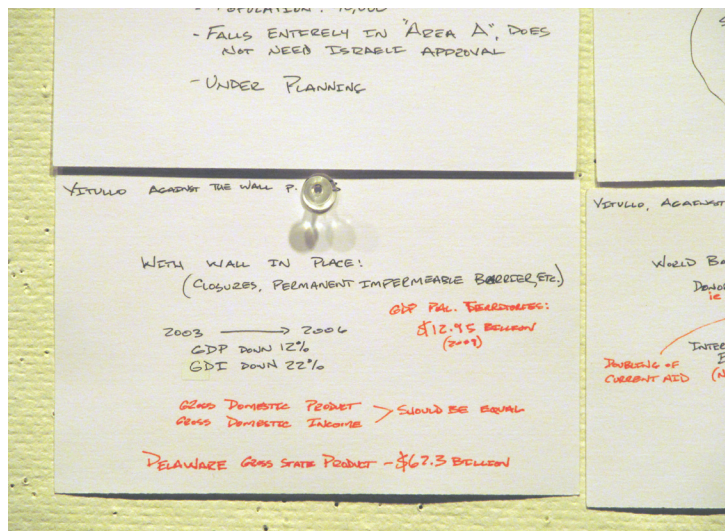 - FALLS ENTIRELY IN "AREA A", DOES
NOT NEED ISRAELI APPROVAL
- UNDER PLANNING
VITULLO AGAINST THE WALL P.
WITH WALL IN PLACE:
(CLOSURES, PERMANENT IMPERMEABLE BARRIER, ETC.)
GDP PAL. TERRITORIES:
$12.95 BILLION
(2009)
2003 → 2006
GDP DOWN 12%
GDI DOWN 22%
GROSS DOMESTIC PRODUCT
GROSS DOMESTIC INCOME > SHOULD BE EQUAL
DELAWARE GROSS STATE PRODUCT - $62.3 BILLION
VITULLO, AGAINST
WORLD
DOUBLING OF
CURRENT AID